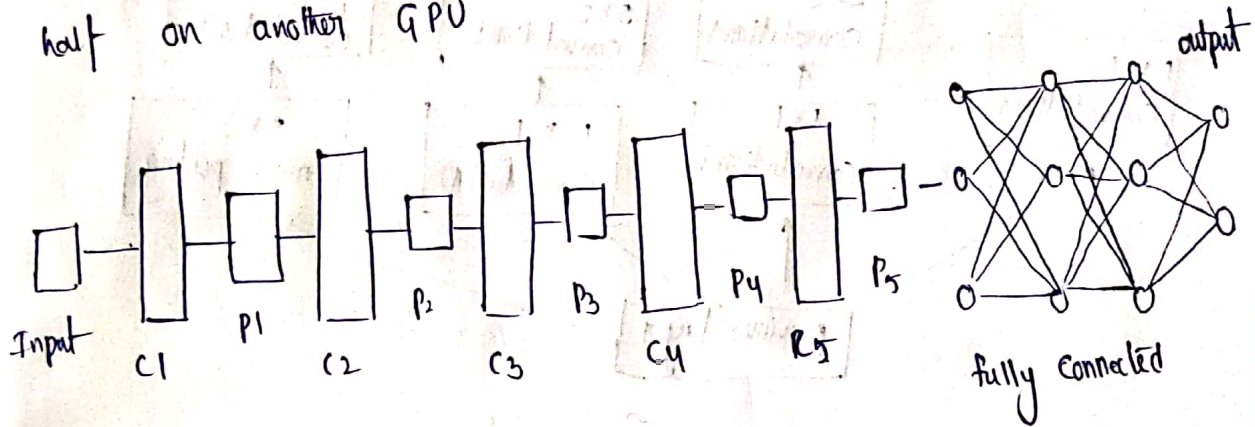 half on another GPU
output
Input C1 P1 C2 P2 C3 P3 C4 P4 R5 P5
fully connected